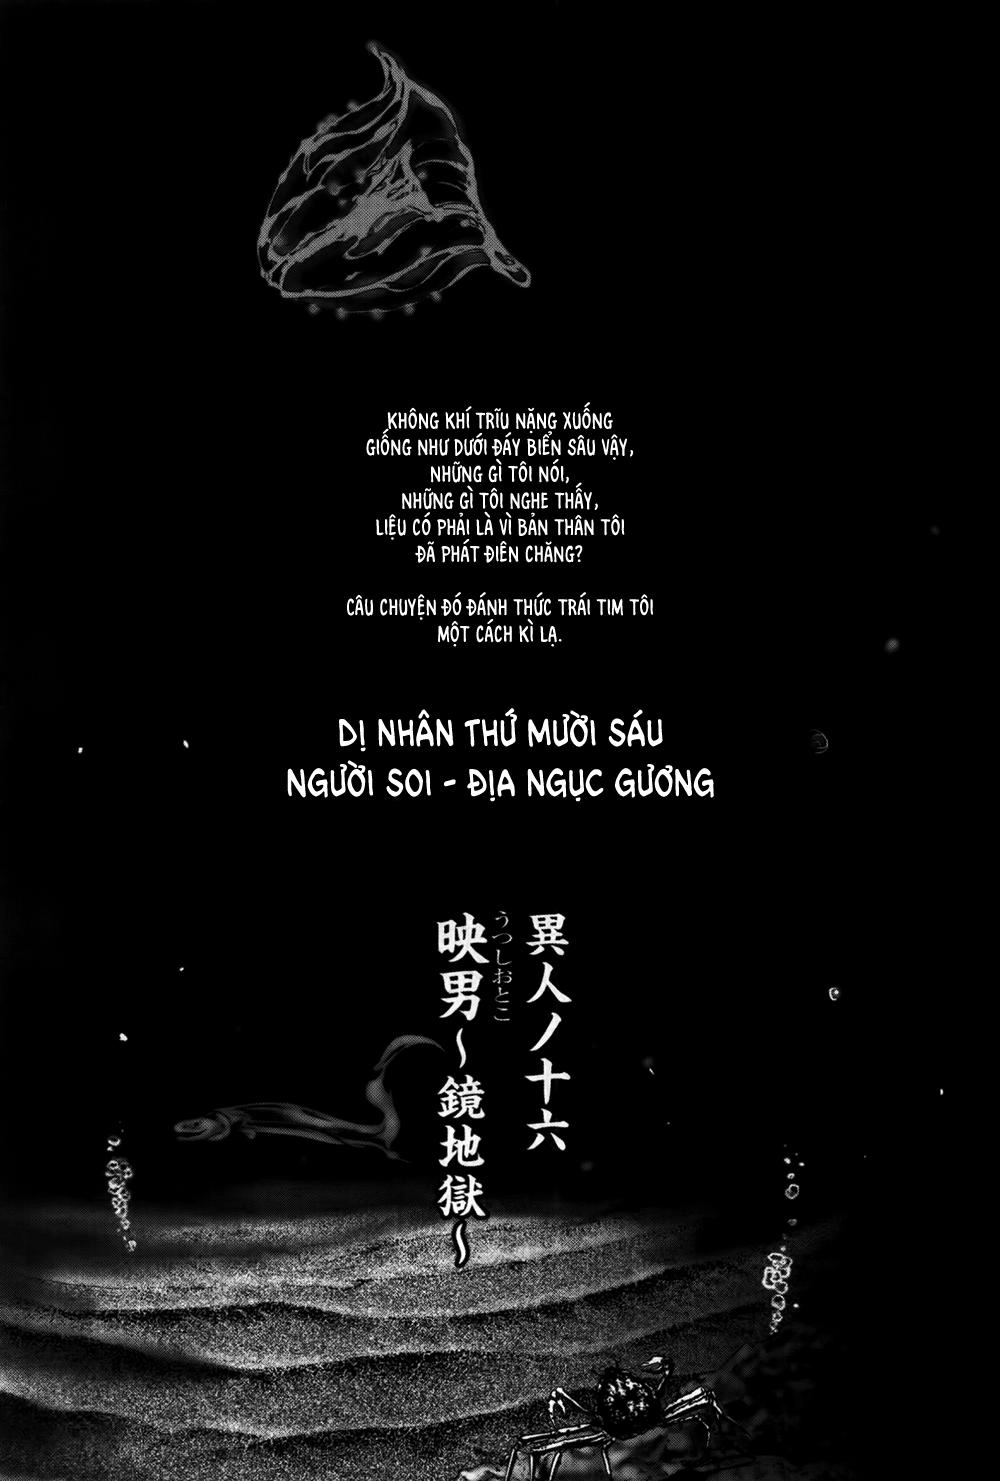 KHÔNG KHÍ TRĨU NẶNG XUỐNG
GIỐNG NHƯ DƯỚI ĐÁY BIỂN SÂU VẬY,
NHỮNG GÌ TÔI NÓI,
NHỮNG GÌ TÔI NGHE THẤY,
LIỆU CÓ PHẢI LÀ VÌ BẢN THÂN TÔI
ĐÃ PHÁT ĐIÊN CHĂNG?
CÂU CHUYỆN ĐÓ ĐÁNH THỨC TRÁI TIM TÔI
MỘT CÁCH KÌ LẠ.
DỊ NHÂN THỨ MƯỜI SÁU
NGƯỜI SOI - ĐỊA NGỤC GƯƠNG
異人ノ十六
うつしおとこ
映男～鏡地獄～